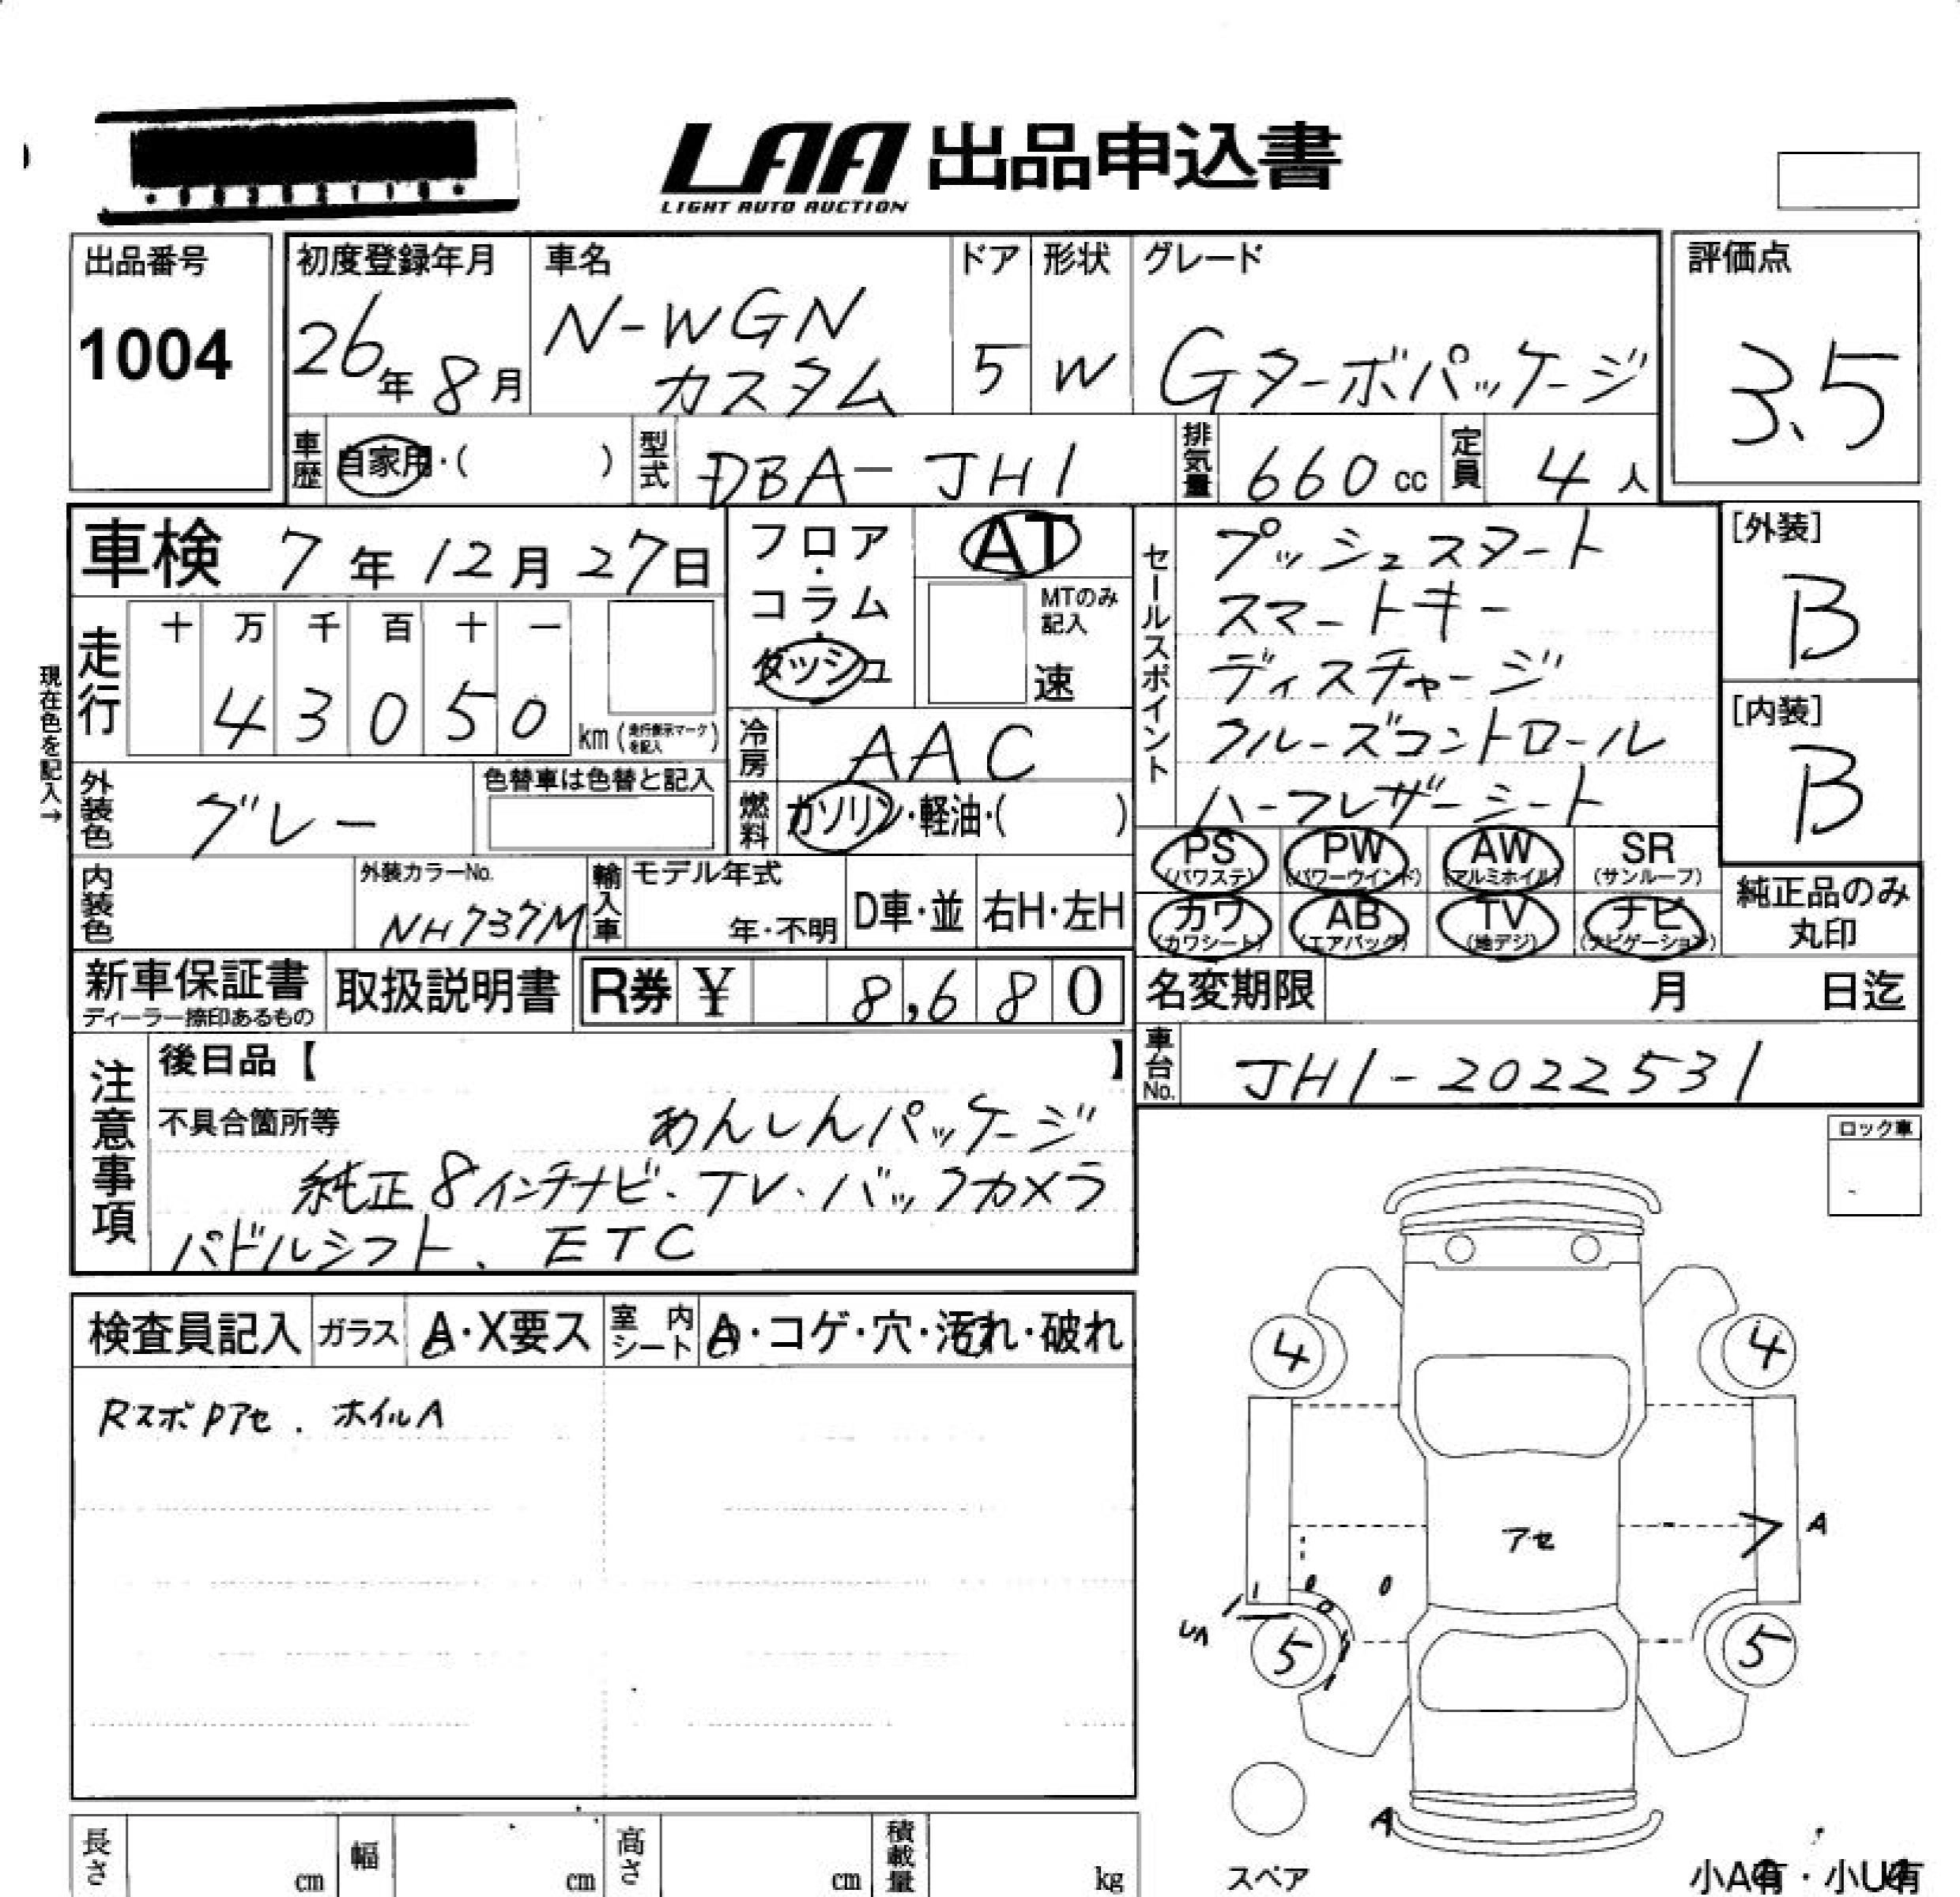 LAA 出品申込書
LIGHT AUTO AUCTION
出品番号
1004
初度登録年月
26年8月
車名
N-WGN
カスタム
ドア
5
形状
W
グレード
Gターボパッケージ
評価点
3.5
車歴
自家用・( )
型式
DBA-JH1
排気量
660cc
定員
4人
車検 7年12月27日
フロア・コラム・ダッシュ
AT
MTのみ記入
速
セールスポイント
プッシュスタート
スマートキー
ディスチャージ
クルーズコントロール
ハーフレザーシート
[外装]
B
[内装]
B
現在色を記入→
走行
十 万 千 百 十 一
4 3 0 5 0 km (走行表示マークを記入)
冷房
AAC
外装色
グレー
色替車は色替と記入
燃料
ガソリン・軽油・( )
PS (パワステ)
PW (パワーウインド)
AW (アルミホイル)
SR (サンルーフ)
カワ (カワシート)
AB (エアバッグ)
TV (地デジ)
ナビ (ナビゲーション)
純正品のみ
丸印
内装色
外装カラーNo.
NH737M
輸入車
モデル年式
年・不明
D車・並
右H・左H
新車保証書
ディーラー捺印あるもの
取扱説明書
R券 ¥ 8,680
名変期限 月 日迄
車台No.
JH1-2022531
注意事項
後日品【 】
不具合箇所等 あんしんパッケージ
純正8インチナビ、TV、バックカメラ
パドルシフト、ETC
ロック車
検査員記入
ガラス
A・X要ス
室内シート
A・コゲ・穴・汚れ・破れ
RスポPアセ、ホイルA
4
4
アセ
A
5
5
A
スペア
長さ cm
幅 cm
高さ cm
積載量 kg
小A有・小U有